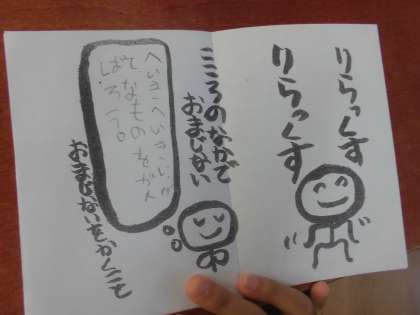 りらっくす
りらっくす
こころのなかで
おまじない
へいき、へいき、じぶん
でなものをがん
ばろう。
おまじないをかくこと